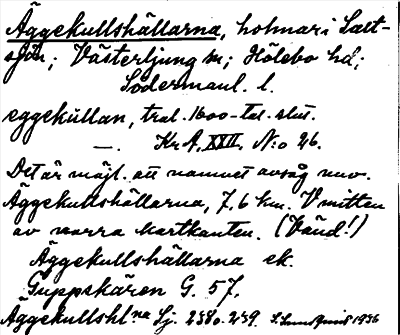 Äggekullshällarna, holmar i Salt-
sjön; Västerljung sn; Hölebo hd;
Södermanl. l.
eggekullan, tral. 1600-tal. slut.
—. KrA, XXII, N:o 26.
Det är möjl. att namnet avsåg nuv.
Äggekullshällarna, 7,6 km. V mitten
av norra kartkanten. (Vänd!)
Äggekullshällarna ek.
Guppskären G. 57.
Äggekullshl.na Sj. 238 o. 239. 1936